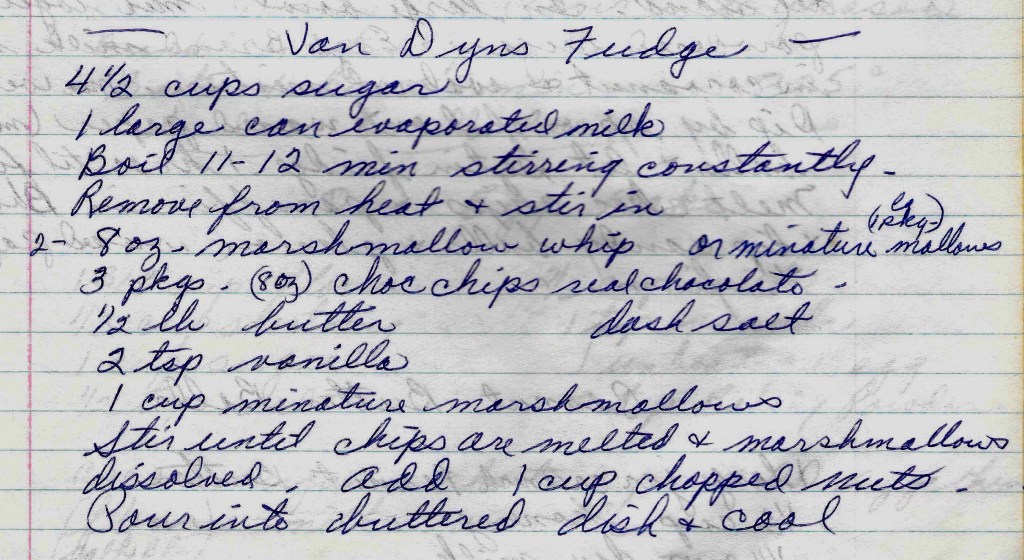 Van Dyns Fudge
4 1/2 cups sugar
1 large can evaporated milk
Boil 11-12 min stirring constantly -
Remove from heat & stir in
2- 8 oz. marshmallow whip or minature (1 pkg.) mallows
3 pkgs. (8 oz) choc chips real chocolate -
1/2 lb butter dash salt
2 tsp vanilla
1 cup minature marshmallows
Stir until chips are melted & marshmallows
dissolved. add 1 cup chopped nuts -
Pour into buttered dish & cool